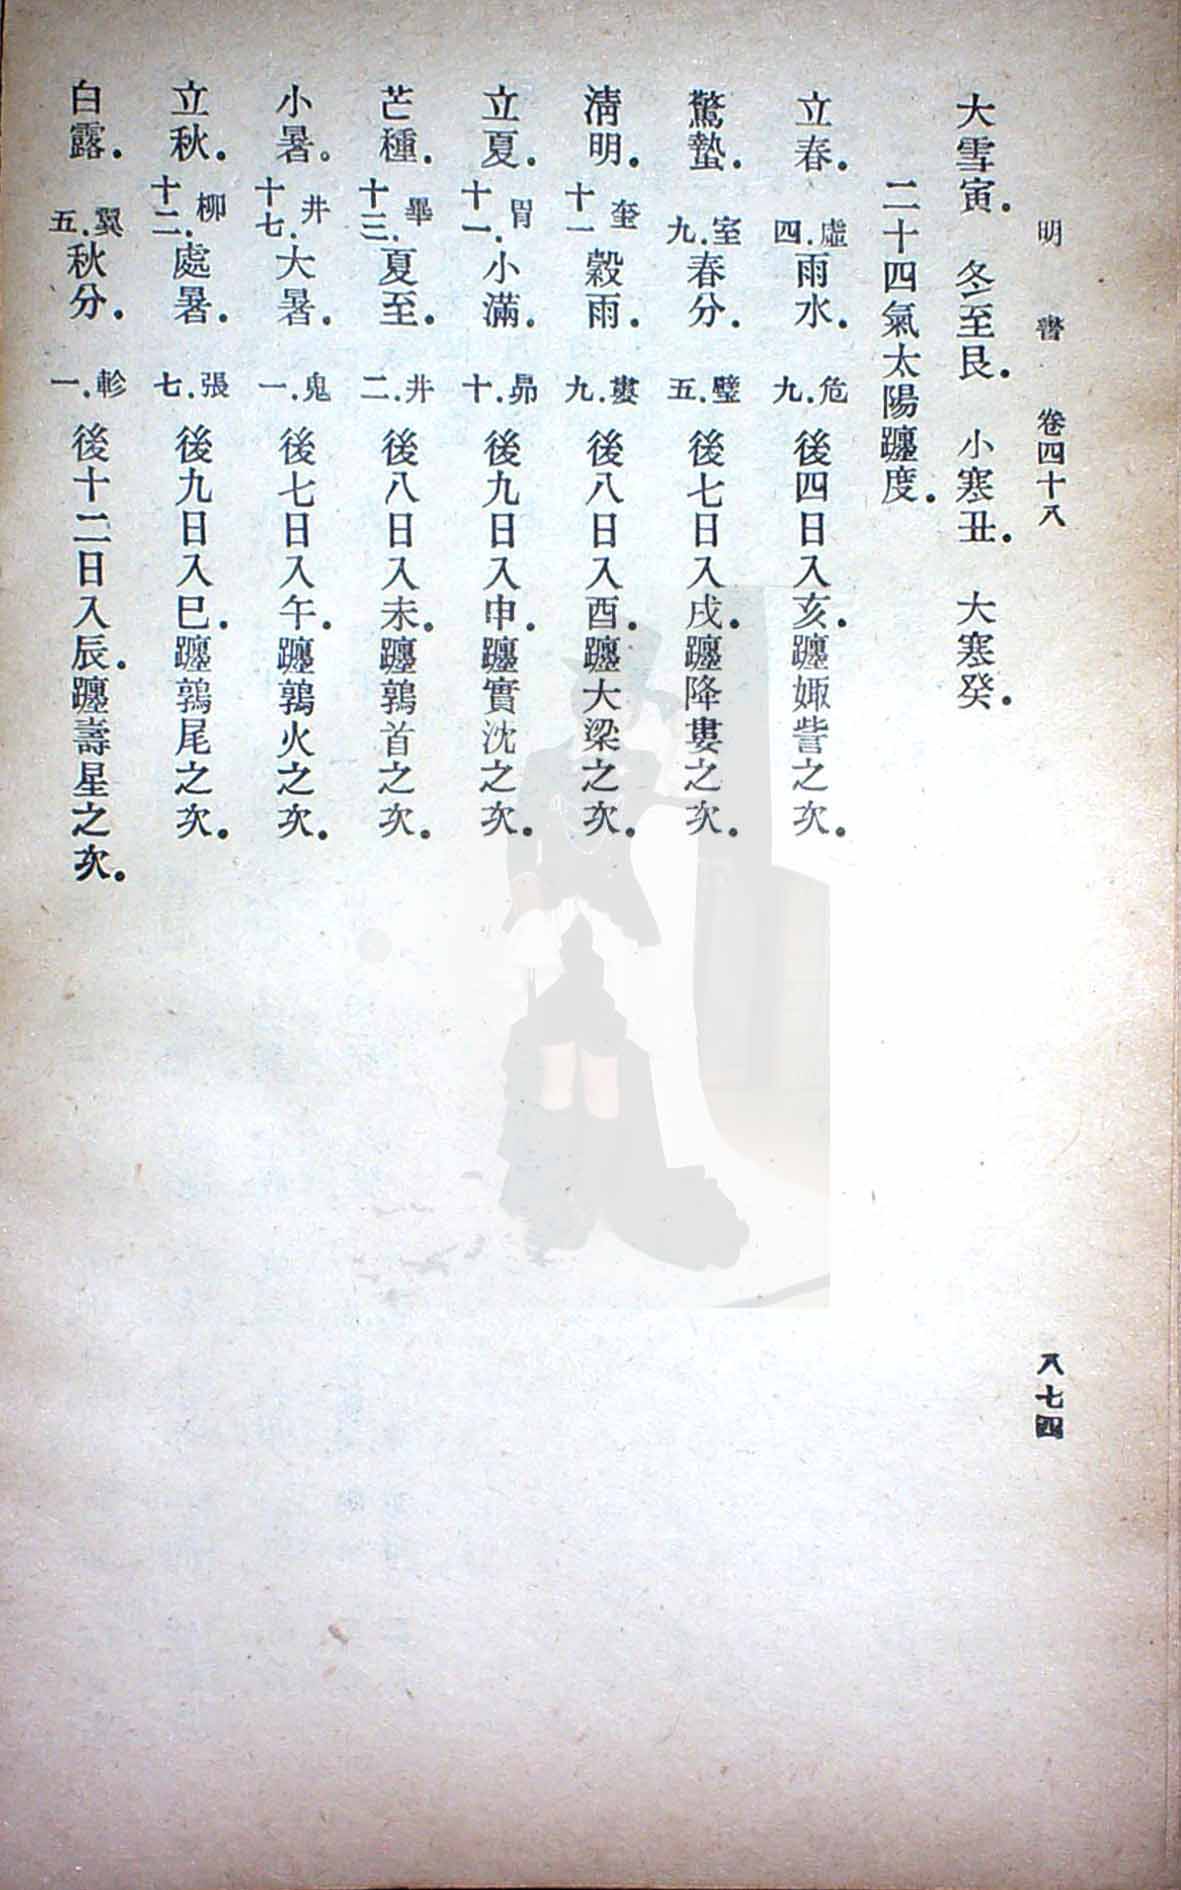 明　書　卷四十八　八七四
大雪寅．　冬至艮．　小寒丑．　大寒癸．
二十四氣太陽躔度．
立春．虛四．雨水．危九．後四日入亥．躔娵訾之次．
驚蟄．室九．春分．壁五．後七日入戌．躔降婁之次．
淸明．奎十一穀雨．婁九．後八日入酉．躔大梁之次．
立夏．胃十一．小滿．昴十．後九日入申．躔實沈之次．
芒種．畢十三．夏至．井二．後八日入未．躔鶉首之次．
小暑。井十七．大暑．鬼一．後七日入午．躔鶉火之次．
立秋．柳十二．處暑．張七．後九日入巳．躔鶉尾之次．
白露．翼五．秋分．軫一．後十二日入辰．躔壽星之次．